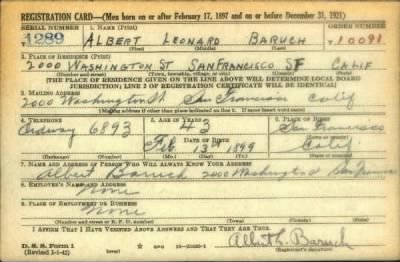 REGISTRATION CARD—(Men born on or after February 17, 1897 and on or before December 31, 1921)
SERIAL NUMBER 1. NAME (Print) ORDER NUMBER
1289 ALBERT LEONARD BARUCH 10091
(First) (Middle) (Last)
2. PLACE OF RESIDENCE (Print)
2000 WASHINGTON ST SAN FRANCISCO SF CALIF
(Number and street) (Town, township, village, or city) (County) (State)
[THE PLACE OF RESIDENCE GIVEN ON THE LINE ABOVE WILL DETERMINE LOCAL BOARD
JURISDICTION; LINE 2 OF REGISTRATION CERTIFICATE WILL BE IDENTICAL]
3. MAILING ADDRESS
2000 Washington St San Francisco Calif
[Mailing address if other than place indicated on line 2. If same insert word same]
4. TELEPHONE 5. AGE IN YEARS 6. PLACE OF BIRTH
Ordway 6893 43 San Francisco
DATE OF BIRTH (Town or county)
Feb 13th 1899 Calif
(Exchange) (Number) (Mo.) (Day) (Yr.) (State or country)
7. NAME AND ADDRESS OF PERSON WHO WILL ALWAYS KNOW YOUR ADDRESS
Albert Baruch 2000 Washington St San Francisco
8. EMPLOYER'S NAME AND ADDRESS
None
9. PLACE OF EMPLOYMENT OR BUSINESS
None
(Number and street or R. F. D. number) (Town) (County) (State)
I AFFIRM THAT I HAVE VERIFIED ABOVE ANSWERS AND THAT THEY ARE TRUE.
D. S. S. Form 1
(Revised 1-1-42) GPO Albert L. Baruch
(Registrant's signature)